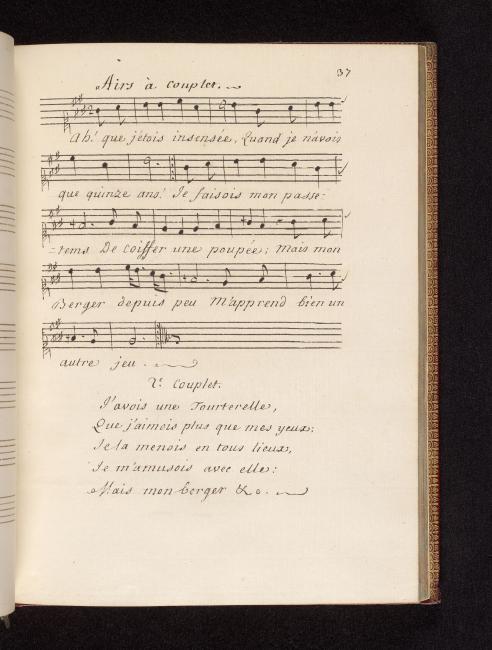 37
Airs à Couplet.
Ah! que j'étois insensée, Quand je n'avois
que quinze ans! Je faisois mon passe-
=tems De coiffer une poupée; Mais mon
Berger depuis peu M'apprend bien un
autre jeu.
2.e Couplet.
J'avois une Tourterelle,
Que j'aimois plus que mes yeux;
Je la menois en tous lieux,
Je m'amusois avec elle:
Mais mon berger &c.